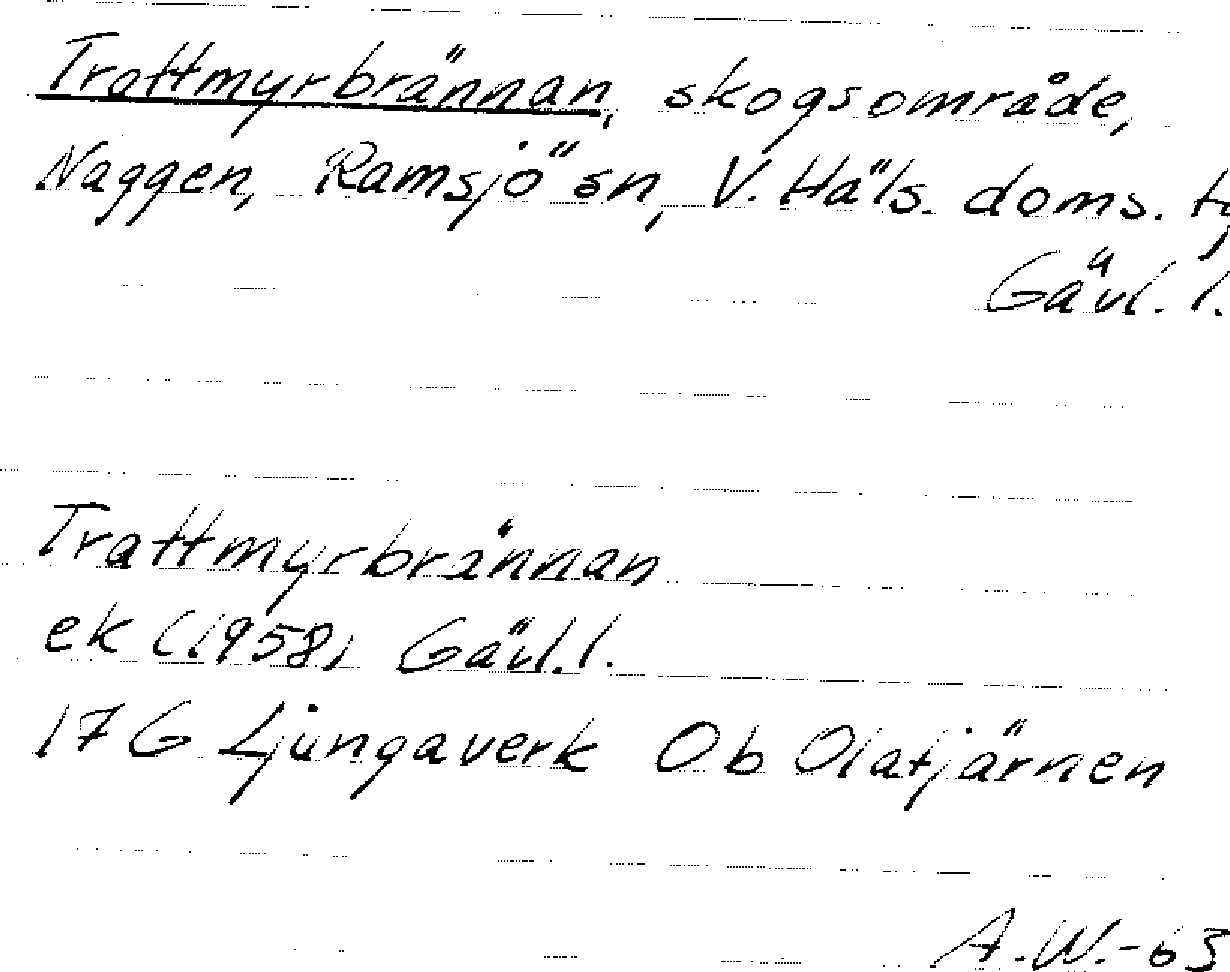 Trottmyrbrännan, skogsområde,
Naggen, Ramsjö sn, V. Häls. doms.
Gävl. l.
Trattmyrbrännan
ek (1958) Gävl. l.
17 G Ljungaverk Ob Olatjärnen
A.W.-63